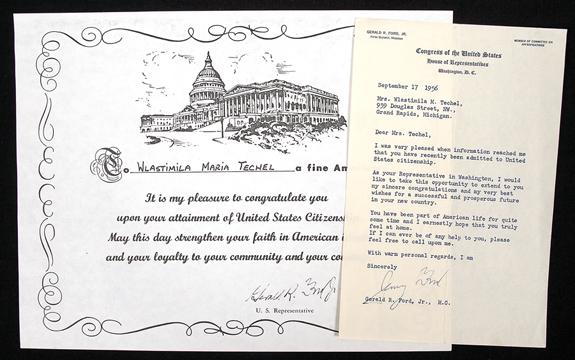 To WLASTIMILA MARIA TECHEL a fine Am
It is my pleasure to congratulate you
upon your attainment of United States Citizens
May this day strengthen your faith in American i
and your loyalty to your community and your co
Gerald R. Ford Jr.
U. S. Representative
GERALD R. FORD, JR.
MEMBER OF COMMITTEE ON
APPROPRIATIONS
Congress of the United States
House of Representatives
Washington, D. C.
September 17 1956
Mrs. Wlastimila M. Techel,
939 Douglas Street, NW.,
Grand Rapids, Michigan.
Dear Mrs. Techel,
I was very pleased when information reached me
that you have recently been admitted to United
States citizenship.
As your Representative in Washington, I would
like to take this opportunity to extend to you
my sincere congratulations and my very best
wishes for a successful and prosperous future
in your new country.
You have been part of American life for quite
some time and I earnestly hope that you truly
feel at home.
If I can ever be of any help to you, please
feel free to call upon me.
With warm personal regards, I am
Sincerely
Jerry Ford
Gerald R. Ford, Jr., M.C.